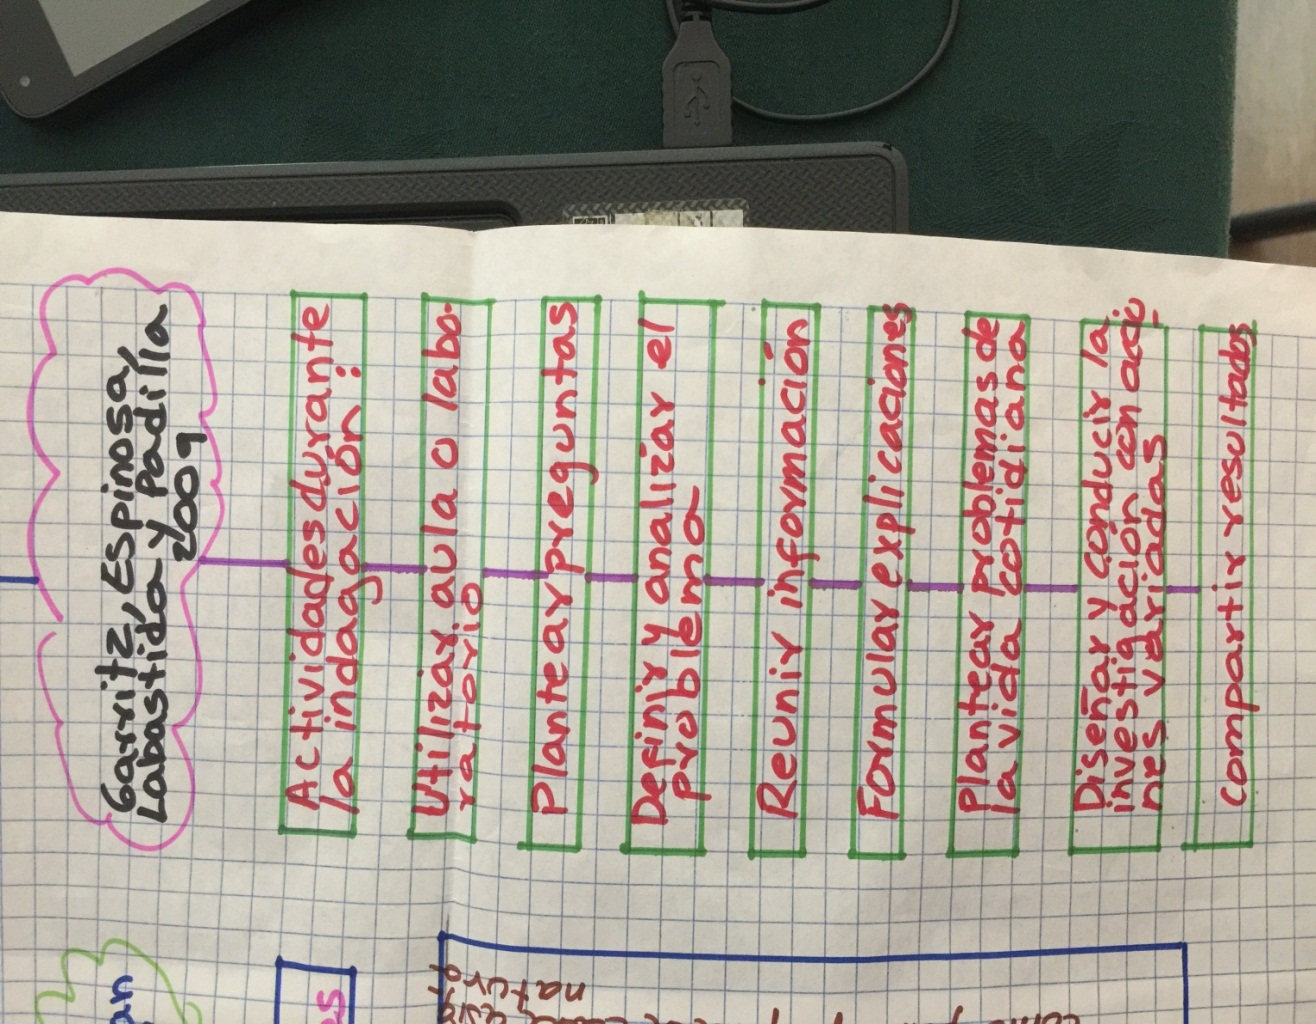 Garritz, Espinosa,
Labastida y Padilla
2009
Actividades durante
la indagación:
Utilizar aula o labo-
ratorio
Plantear preguntas
Definir y analizar el
problema
Reunir información
Formular explicaciones
Plantear problemas de
la vida cotidiana
Diseñar y conducir la
investigación con acci
nes variadas
compartir resultados
an
es
natur